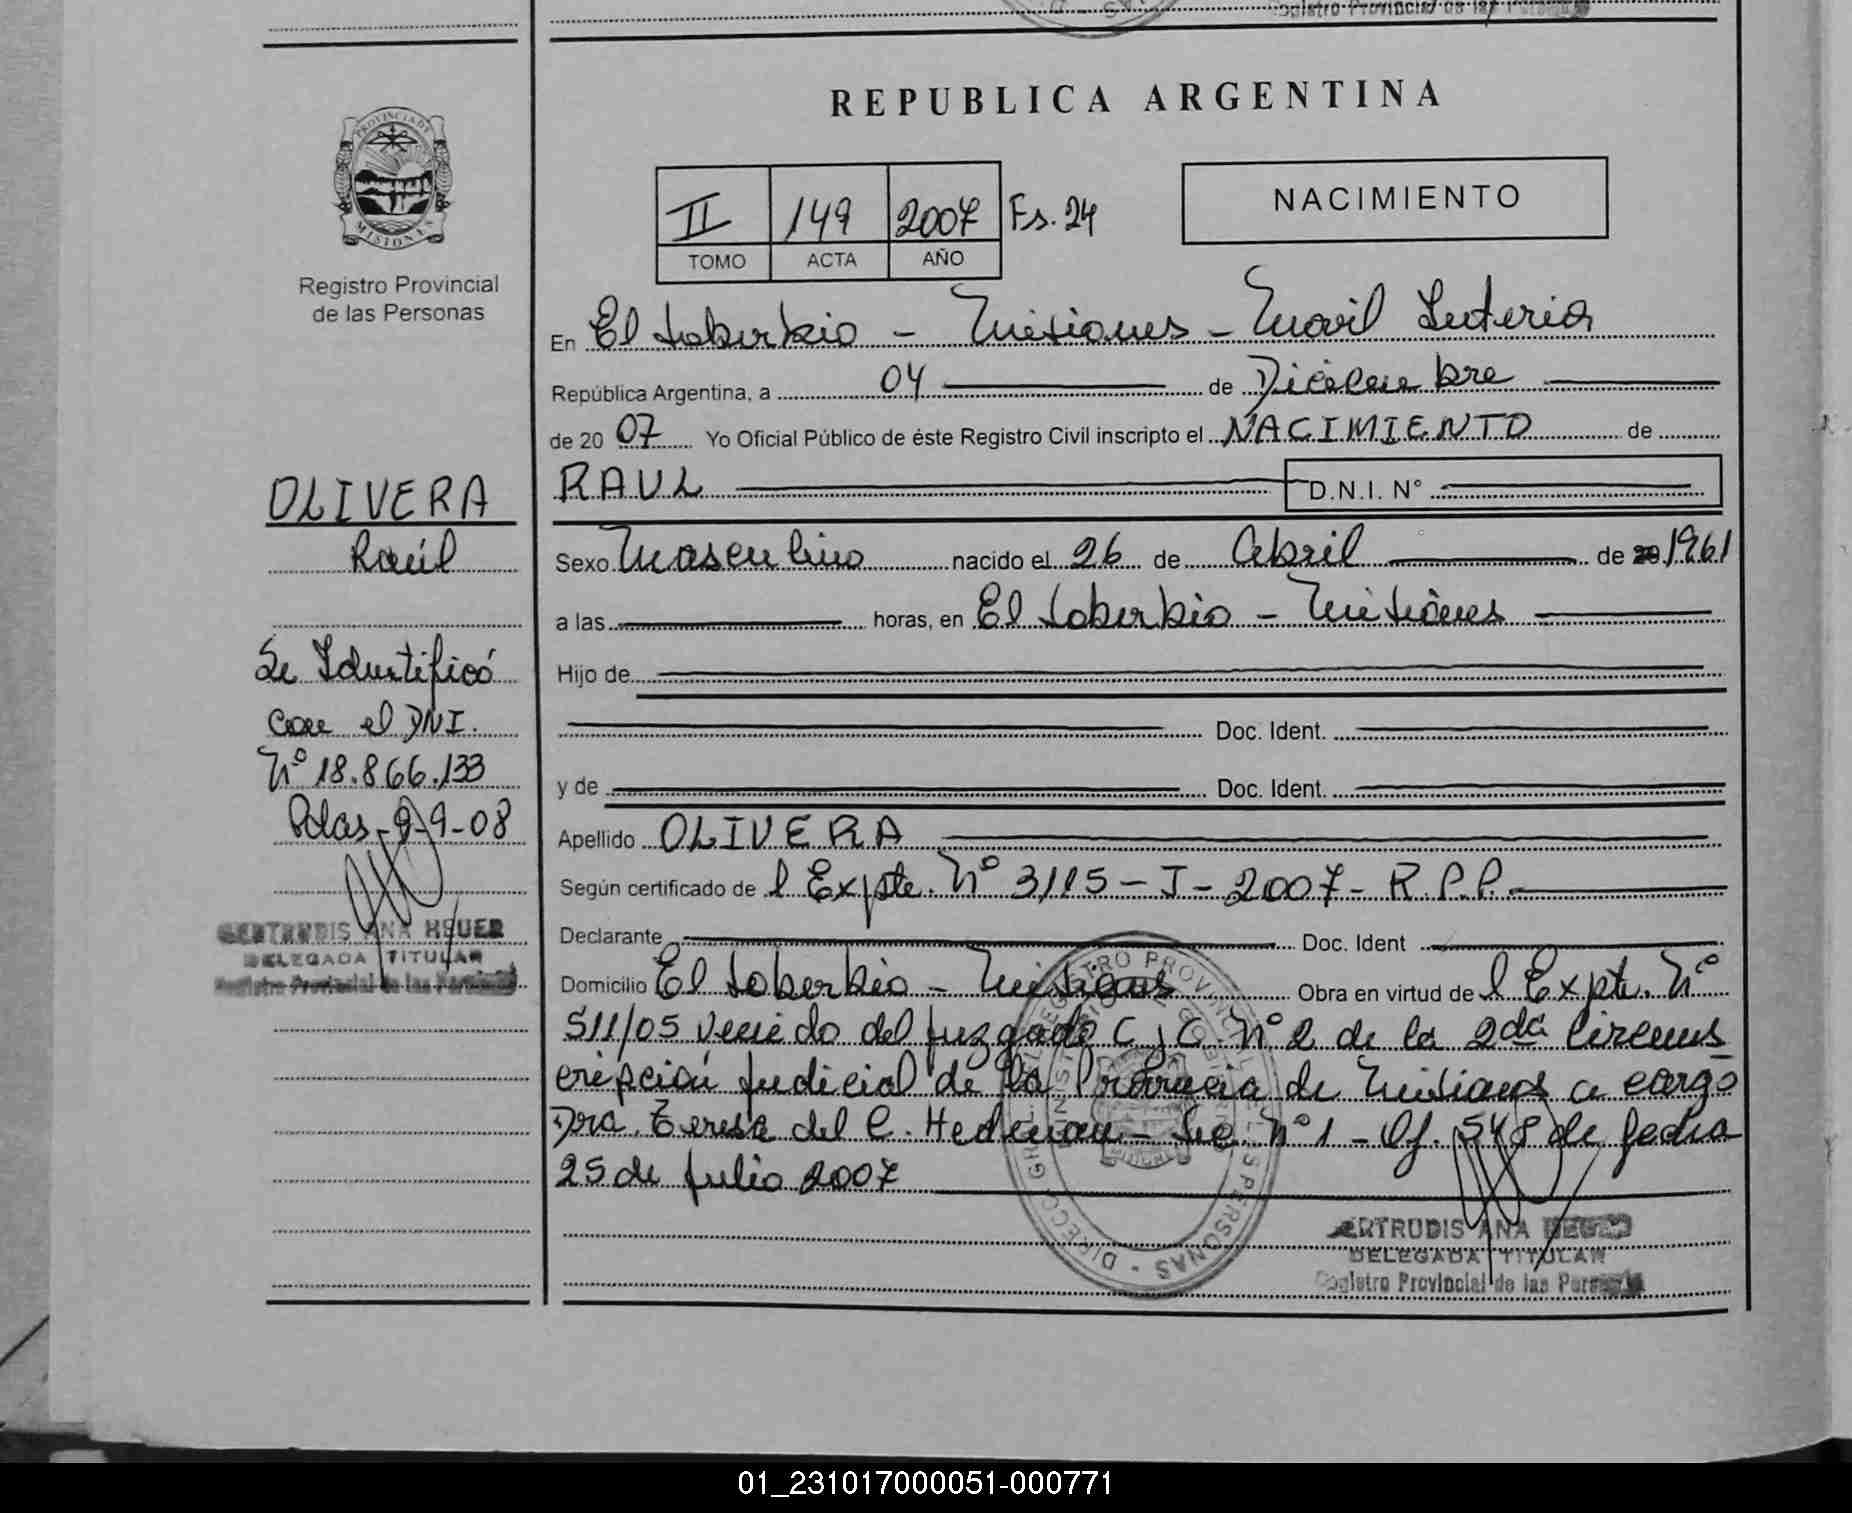 Registro Provincial de las Personas
REPUBLICA ARGENTINA
PROVINCIA DE
MISIONES
Registro Provincial
de las Personas
II 149 2007 Fs. 24
TOMO ACTA AÑO
NACIMIENTO
En El Soberbio - Misiones - Movil
República Argentina, a 04 de Diciembre
de 20 07 Yo Oficial Público de éste Registro Civil inscripto el NACIMIENTO de
RAUL D.N.I. N°
Sexo Masculino nacido el 26 de Abril de 20 1961
a las horas, en El Soberbio - Misiones
Hijo de
Doc. Ident.
y de Doc. Ident.
Apellido OLIVERA
Según certificado de l Expte. N° 3115 - J - 2007 - R.P.P.
Declarante Doc. Ident
Domicilio El Soberbio - Misiones Obra en virtud de l Expte. N°
511/05 venido del juzgado C. y C. N° 2 de la 2da Circuns
cripción judicial de la Provincia de Misiones a cargo
Dra. Teresa del C. Hedman - Sec. N° 1 - Of. 548 de fecha
25 de julio 2007
GERTRUDIS ANA HEUER
DELEGADA TITULAR
Registro Provincial de las Personas
OLIVERA
Raúl
Se Identificó
con el DNI.
N° 18.866.133
Pdas-9-9-08
GERTRUDIS ANA HEUER
DELEGADA TITULAR
Registro Provincial de las Personas
01_231017000051-000771